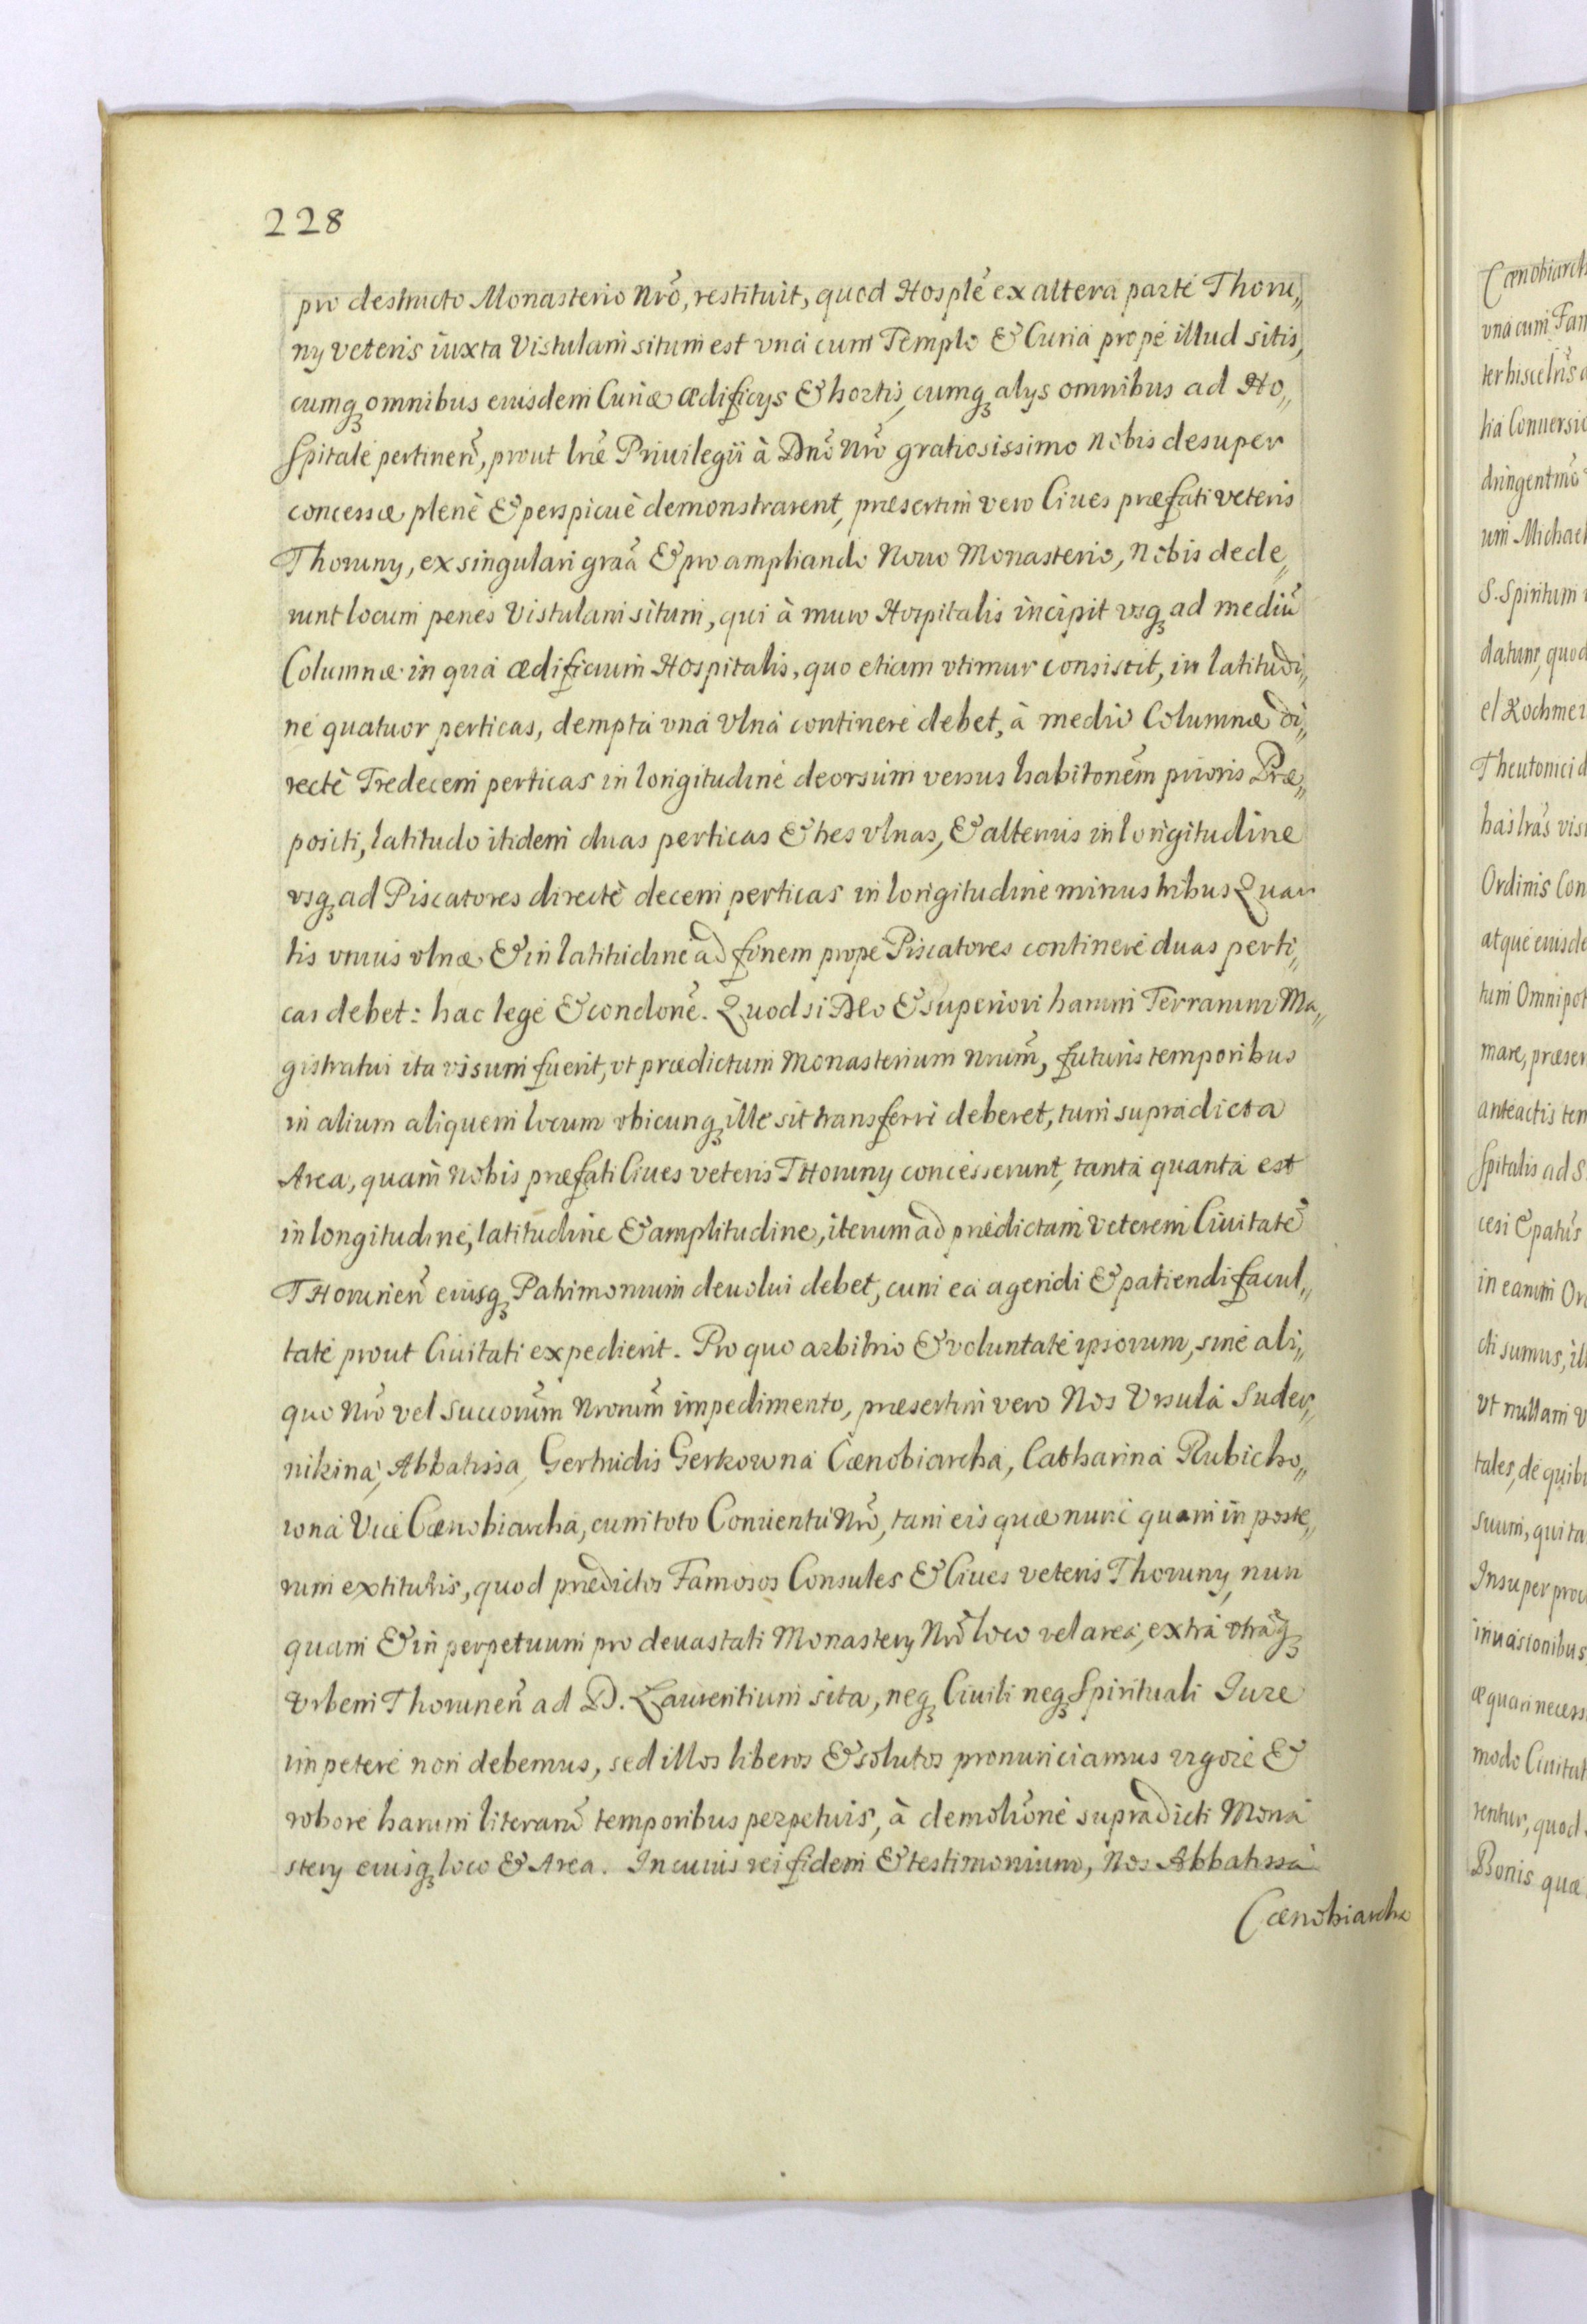 228
pro destructo Monasterio Nrõ, restituit, quod Hosplẽ ex altera parte Thoru„
ny veteris iuxta Vistulam situm est vna cum Templo & Curia prope illud sitis,
cumq omnibus eiusdem Curiæ ædificys & hortis, cumq alys omnibus ad Ho„
spitale pertineñ, prout lrẽ Priuilegii à Dnõ Nrõ gratiosissimo nobis desuper
concessæ plenè & perspicuè demonstrarent, præsertim vero Ciues præfati veteris
Thoruny, ex singulari graã & pro ampliando Nouo Monasterio, Nobis dede„
runt locum penes Vistulam situm, qui à muro Hospitalis incipit vsq ad mediũ
Columnæ in qua ædificium Hospitalis, quo etiam vtimur consistit, in latitudi„
ne quatuor perticas, dempta vna Vlna continere debet, à medio Columnæ di„
rectè Tredecem perticas in longitudine deorsum versus habitonẽm prioris Præ„
positi, latitudo itidem duas perticas & tres vlnas, & alterius in longitudine
vsq ad Piscatores directè decem perticas in longitudine minus tribus Quar
tis vnius vlnæ & in latitudine ad finem prope Piscatores continere duas perti„
cas debet: hac lege & condonẽ. Quod si Deo & superiori harum Terrarum Ma„
gistratui ita visum fuerit, vt prædictum Monasterium Nrum̃, futuris temporibus
in alium aliquem locum vbicunq ille sit transferri deberet, tum supradicta
Area, quam nobis præfati Ciues veteris THoruny concesserunt, tanta quanta est
in longitudine, latitudine & amplitudine, iterum ad prædictam veterem Ciuitatẽ
THoruneñ eiusq Patrimonium deuolui debet, cum ea agendi & patiendi facul„
tate prout Ciuitati expedierit. Pro quo arbitrio & voluntate ipsorum, sine ali„
quo Nrõ vel Succorum̃ Nrorum̃ impedimento, præsertim vero Nos Vrsula Suder„
nikina, Abbatissa, Gertrudis Gerkowna Cænobiarcha, Catharina Rubicho„
wna Vice Cænobiarcha, cum toto Conuentu Nrõ, tam eis quæ nunc quam in poste„
rum extituris, quod prædictos Famosos Consules & Ciues veteris Thoruny, nun
quam & in perpetuum pro deuastati Monastery Nrõ loco vel area, extra vtrãq
Vrbem Thoruneñ ad D. Laurentium sita, neq Ciuili neq Spirituali Iure
impetere non debemus, sed illos liberos & solutos pronunciamus vigore &
robore harum literarũ temporibus perpetuis, à demoliõne supradicti Mona
stery eiusq loco & Area. In cuius rei fidem & testimonium, Nos Abbatissa
Cænobiarcha
Cænobiarch
vna cum Fam
ter hisce lrĩs
lia Conuersio
dringentmõ
um Michael
S. Spiritum
datum, quod
el Kochmei
Theutonici
has lrãs visu
Ordinis Con
atque eiusde
tum Omnipot
mare, præser
anteactis tem
spitalis ad S
in eam̃ Ord
cti sumus, ill
Vt nullam v
tales, de quib
suum, qui ta
Insuper proc
inuasionibus
modo Ciuitat
rentur, quod
Bonis quæ